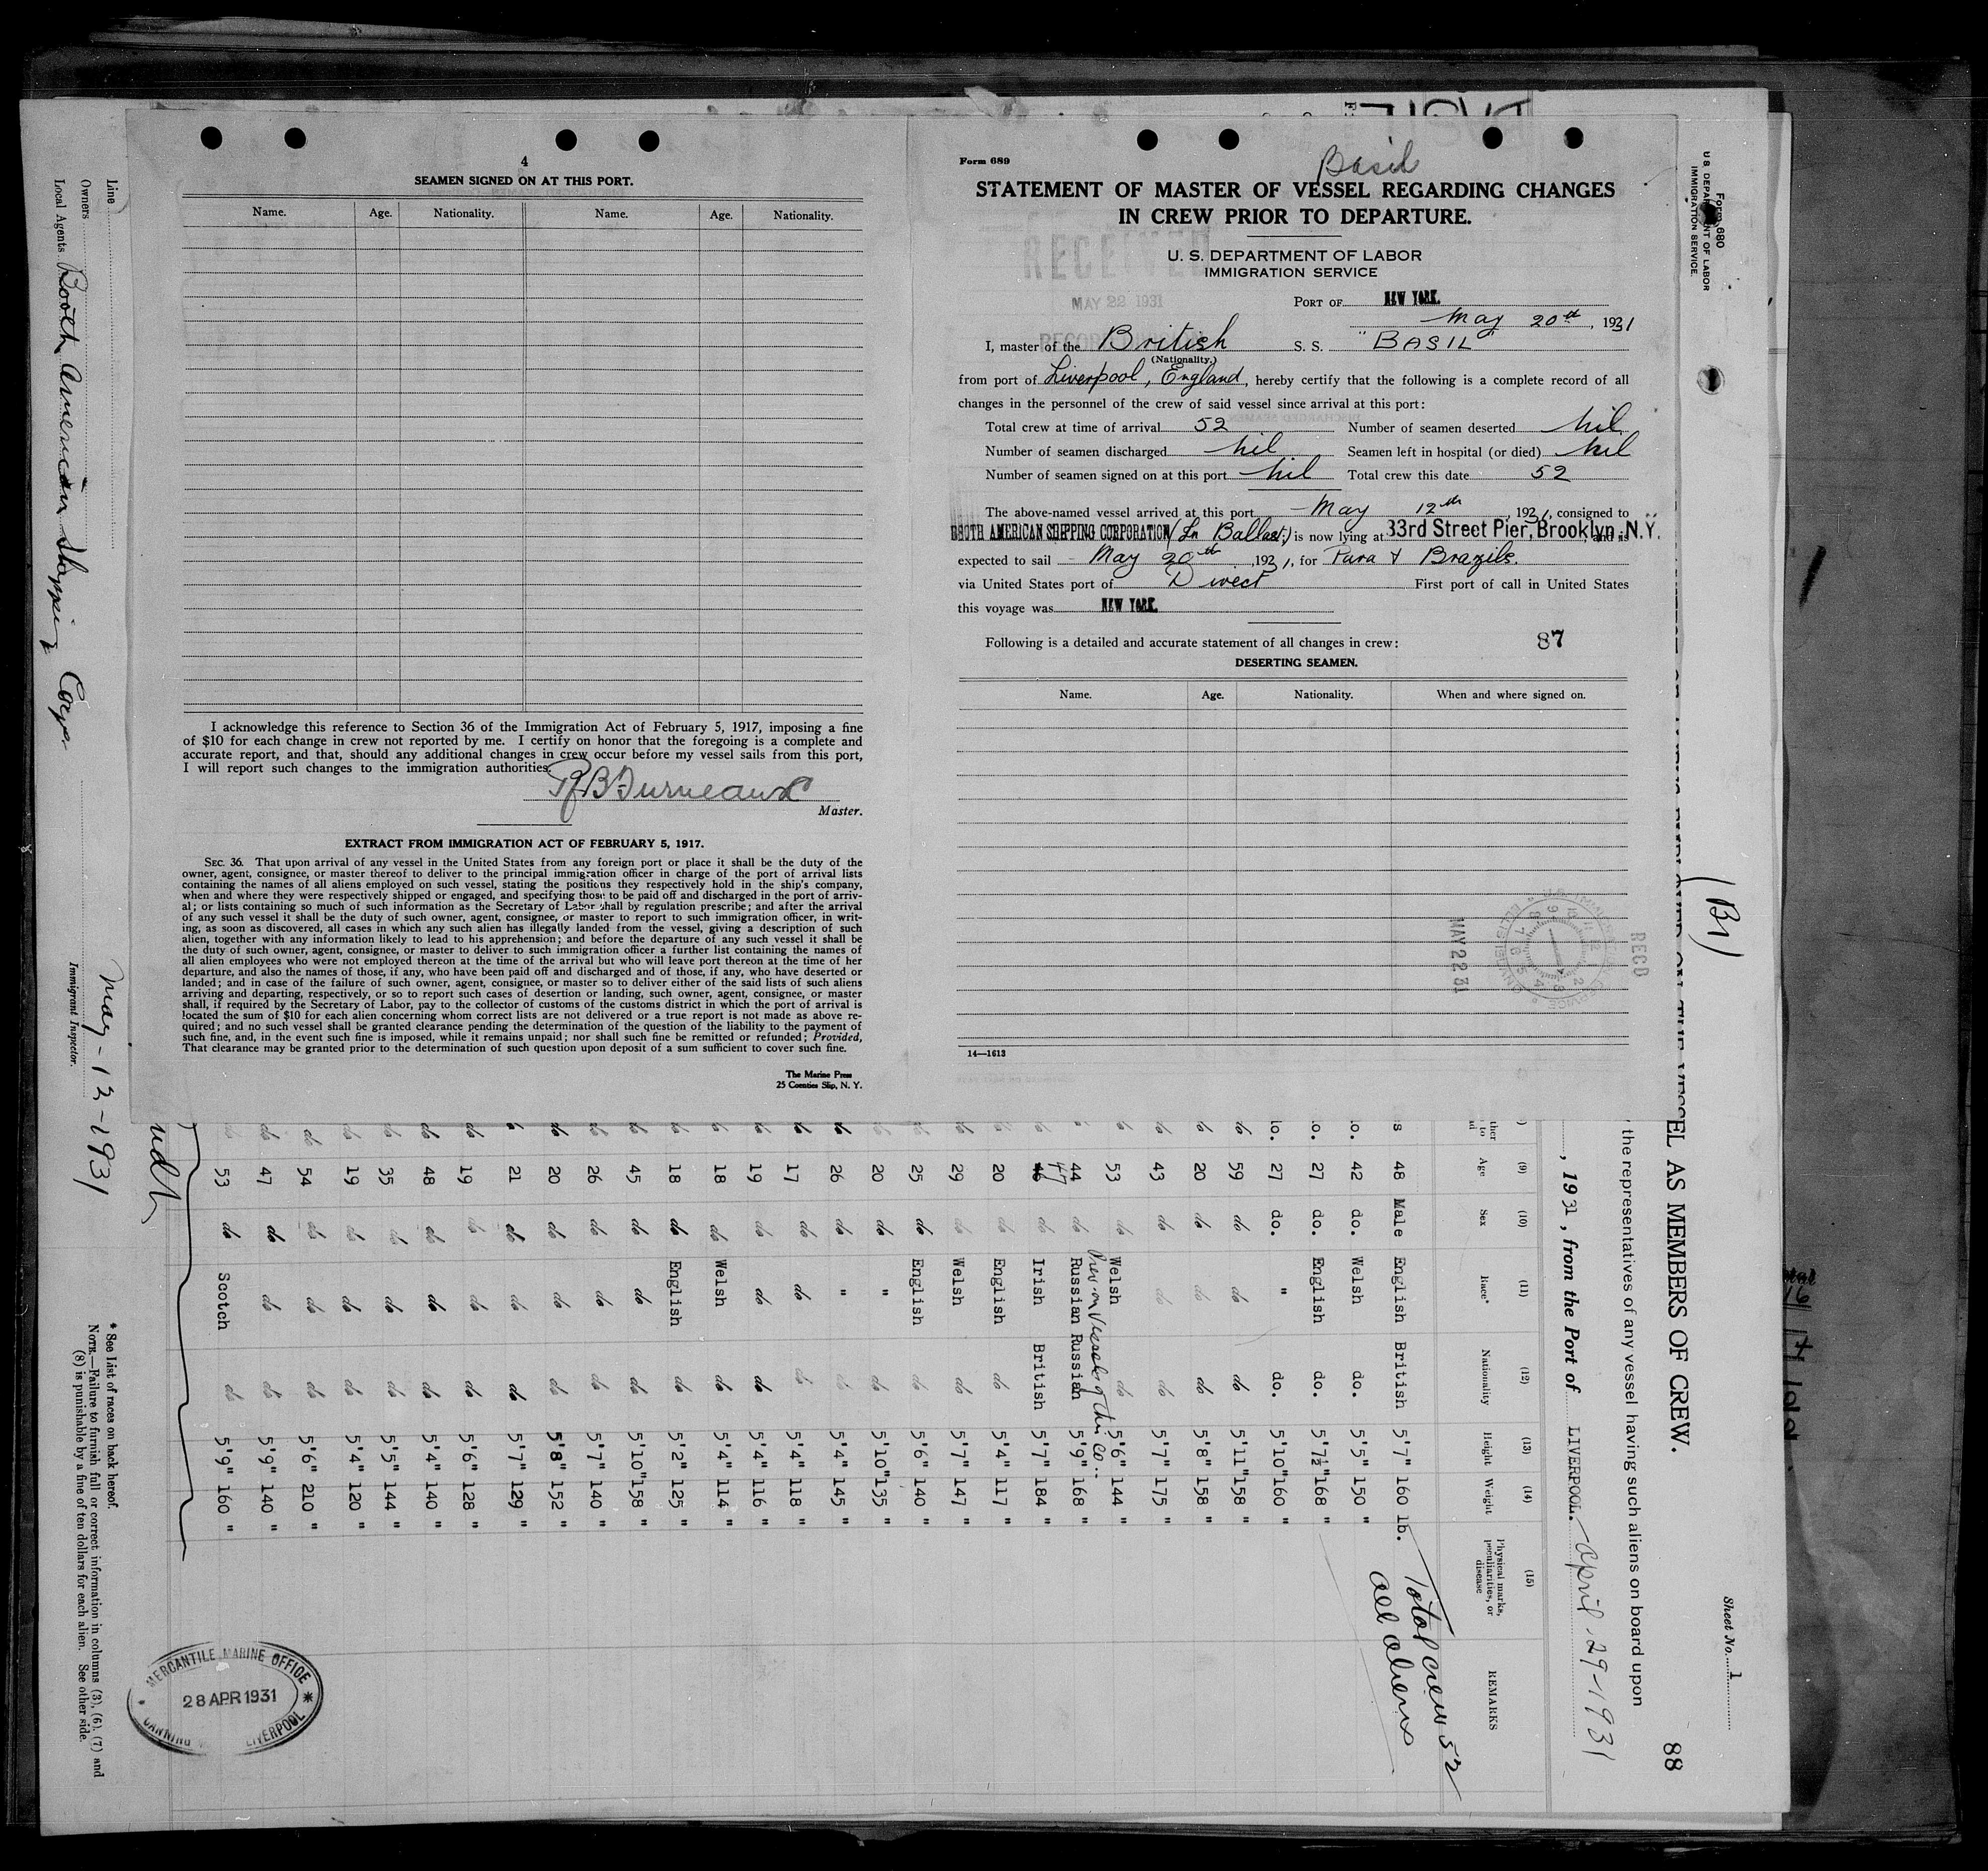 4
SEAMEN SIGNED ON AT THIS PORT.
Name. Age. Nationality. Name. Age. Nationality.
I acknowledge this reference to Section 36 of the Immigration Act of February 5, 1917, imposing a fine
of $10 for each change in crew not reported by me. I certify on honor that the foregoing is a complete and
accurate report, and that, should any additional changes in crew occur before my vessel sails from this port,
I will report such changes to the immigration authorities.
Master.
EXTRACT FROM IMMIGRATION ACT OF FEBRUARY 5, 1917.
SEC. 36. That upon arrival of any vessel in the United States from any foreign port or place it shall be the duty of the
owner, agent, consignee, or master thereof to deliver to the principal immigration officer in charge of the port of arrival lists
containing the names of all aliens employed on such vessel, stating the positions they respectively hold in the ship's company,
when and where they were respectively shipped or engaged, and specifying those to be paid off and discharged in the port of arriv-
al; or lists containing so much of such information as the Secretary of Labor shall by regulation prescribe; and after the arrival
of any such vessel it shall be the duty of such owner, agent, consignee, or master to report to such immigration officer, in writ-
ing, as soon as discovered, all cases in which any such alien has illegally landed from the vessel, giving a description of such
alien, together with any information likely to lead to his apprehension; and before the departure of any such vessel it shall be
the duty of such owner, agent, consignee, or master to deliver to such immigration officer a further list containing the names of
all alien employees who were not employed thereon at the time of the arrival but who will leave port thereon at the time of her
departure, and also the names of those, if any, who have been paid off and discharged and of those, if any, who have deserted or
landed; and in case of the failure of such owner, agent, consignee, or master so to deliver either of the said lists of such aliens
arriving and departing, respectively, or so to report such cases of desertion or landing, such owner, agent, consignee, or master
shall, if required by the Secretary of Labor, pay to the collector of customs of the customs district in which the port of arrival is
located the sum of $10 for each alien concerning whom correct lists are not delivered or a true report is not made as above re-
quired; and no such vessel shall be granted clearance pending the determination of the question of the liability to the payment of
such fine, and, in the event such fine is imposed, while it remains unpaid; nor shall such fine be remitted or refunded; Provided,
That clearance may be granted prior to the determination of such question upon deposit of a sum sufficient to cover such fine.
The Marine Press
25 Coenties Slip, N. Y.
Form 689
Basil
STATEMENT OF MASTER OF VESSEL REGARDING CHANGES
IN CREW PRIOR TO DEPARTURE.
U. S. DEPARTMENT OF LABOR
IMMIGRATION SERVICE
RECEIVED
MAY 22 1931
PORT OF NEW YORK.
May 20th, 1931
I, master of the British S. S. "BASIL"
(Nationality.)
from port of Liverpool, England, hereby certify that the following is a complete record of all
changes in the personnel of the crew of said vessel since arrival at this port:
Total crew at time of arrival 52 Number of seamen deserted Nil
Number of seamen discharged Nil Seamen left in hospital (or died) Nil
Number of seamen signed on at this port Nil Total crew this date 52
The above-named vessel arrived at this port May 12th, 1931, consigned to
BOOTH AMERICAN SHIPPING CORPORATION (In Ballast) is now lying at 33rd Street Pier, Brooklyn, N.Y. and is
expected to sail May 20th, 1931, for Para & Brazils.
via United States port of Direct First port of call in United States
this voyage was NEW YORK.
Following is a detailed and accurate statement of all changes in crew: 87
DESERTING SEAMEN.
Name. Age. Nationality. When and where signed on.
MAY 22 31
RECD
14—1613
Form 680
U. S. DEPARTMENT OF LABOR
IMMIGRATION SERVICE.
(Br)
Sheet No. 1
88
VESSEL AS MEMBERS OF CREW.
the representatives of any vessel having such aliens on board upon
, 1931, from the Port of LIVERPOOL. April 29-1931
(9) (10) (11) (12) (13) (14) (15)
Age Sex Race* Nationality Height Weight Physical marks, peculiarities, or disease REMARKS
48 Male English British 5'7" 160 lb.
42 do. Welsh do. 5'5" 150 "
27 do. English do. 5'7½" 168 "
27 do. " do. 5'10" 160 "
59 do do do 5'11" 158 "
20 do do do 5'8" 158 "
43 do do do 5'7" 175 "
53 do Welsh do 5'6" 144 "
Prev on Vessels of this Co..
44 do Russian Russian 5'9" 168 "
47 do Irish British 5'7" 184 "
20 do English do 5'4" 117 "
29 do Welsh do 5'7" 147 "
25 do English do 5'6" 140 "
20 do " do 5'10" 135 "
26 do " do 5'4" 145 "
17 do do do 5'4" 118 "
19 do do do 5'4" 116 "
18 do Welsh do 5'4" 114 "
18 do English do 5'2" 125 "
45 do do do 5'10" 158 "
26 do do do 5'7" 140 "
20 do do do 5'8" 152 "
21 do do do 5'7" 129 "
19 do do do 5'6" 128 "
48 do do do 5'4" 140 "
35 do do do 5'5" 144 "
19 do do do 5'4" 120 "
54 do do do 5'6" 210 "
47 do do do 5'9" 140 "
53 do Scotch do 5'9" 160 "
Total crew 52
all aliens
Line
Owners
Local Agents Booth American Shipping Corp.
May-12-1931
Immigrant Inspector.
* See List of races on back hereof.
NOTE.—Failure to furnish full or correct information in columns (3), (6), (7) and
(8) is punishable by a fine of ten dollars for each alien. See other side.
MERCANTILE MARINE OFFICE
28 APR 1931
LIVERPOOL